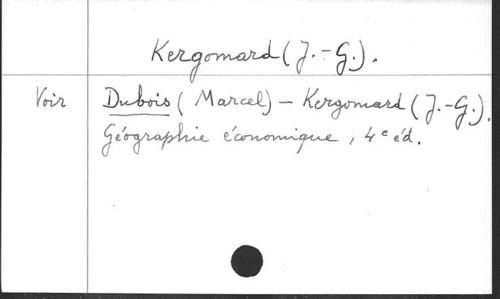 Kergomard (J.-G.).
Voir Dubois (Marcel) – Kergomard (J.-G.).
Géographie économique, 4e éd.